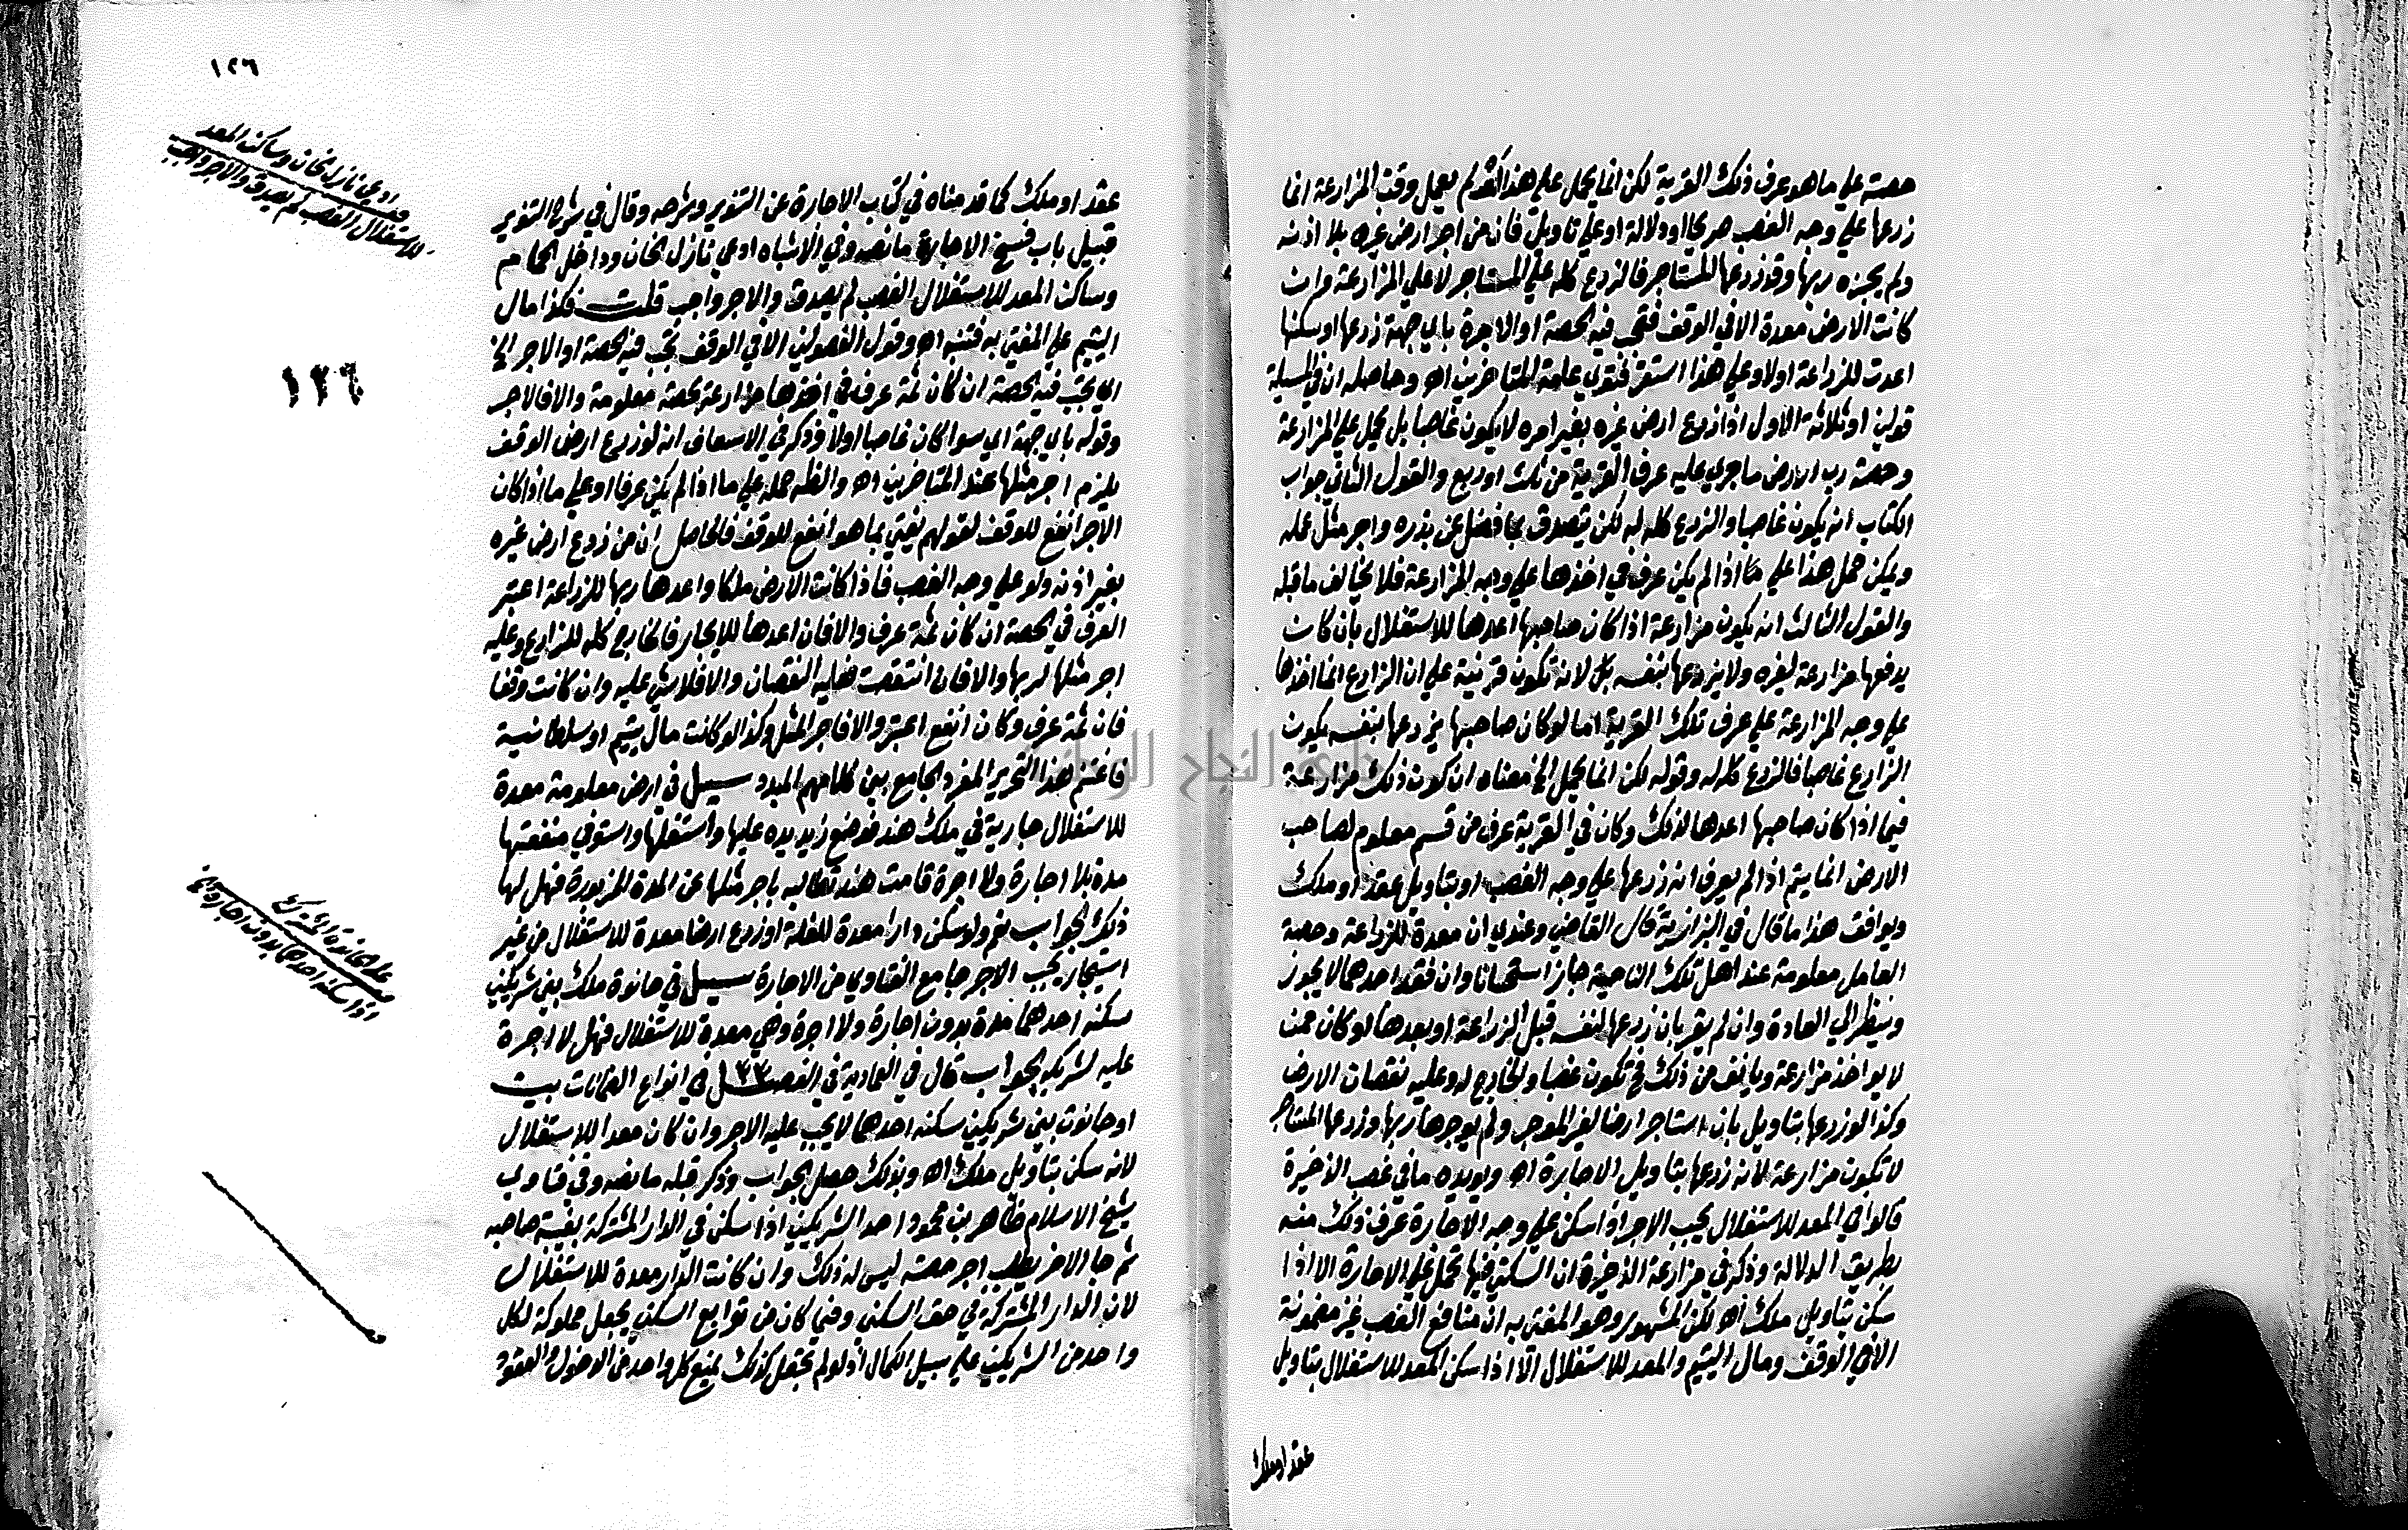 حصته علي ما هو عرف ذلك القرية لكن انما يحمل علي هذا اذا لم يعلم وقت المزارعة انما
زرعها علي وجه الغصب صريحا او دلالة او علي تاويل فان من اجر ارض غيره بلا اذنه
ولم يجزه ربها وقد زرعها المستاجر فالزرع كله علي المستاجر لا علي المزارعة وان
كانت الارض معدة الا في الوقف فتجب فيه الحصة او الاجرة باي جهة زرعها او سكنها
اعدت للزراعة اولا وعلي هذا استقر فتوي عامة المتاخرين اه وحاصله ان في المسيلة
قولين او ثلاثة الاول اذا زرع ارض غيره بغير امره لا يكون غاصبا بل يحمل علي المزارعة
وحصة رب الارض ما جري عليه عرف القرية من ثلث او ربع والقول الثاني جواب
الكتاب انه يكون غاصبا والزرع كله له لكن يتصدق بما فضل عن بذره واجر مثل عمله
ويمكن حمل هذا علي ما اذا لم يكن عرف في اخذها علي وجه المزارعة فلا يخالف ما قبله
والقول الثالث انه يكون مزارعة اذا كان صاحبها اعدها للاستغلال بان كان
يدفعها مزارعة لغيره ولا يزرعها بنفسه بل لانه تكون قرينة علي ان الزارع انما اخذها
علي وجه المزارعة علي عرف تلك القرية اما لو كان صاحبها يزرعها بنفسه يكون
الزارع غاصبا فالزرع كله له وقوله لكن انما يحمل الخ معناه ان كون ذلك مزارعة
فيما اذا كان صاحبها اعدها لذلك وكان في القرية عرف من قسم معلوم لصاحب
الارض انما يتم اذا لم يعرف انه زرعها علي وجه الغصب او بتاويل عقد او ملك
ويوافق هذا ما قال في البزازية قال القاضي وعندي ان معدة للزراعة وحصة
العامل معلومة عند اهل تلك الناحية جاز استحسانا وان فقد احدهما لا يجوز
وينظر الي العادة وان لم يقر بان زرعها لنفسه قبل الزراعة او بعدها لو كان ممن
لا ياخذ مزارعة ويانف من ذلك فح تكون غصبا والخارج له وعليه نقصان الارض
وكذا لو زرعها بتاويل بان استاجر ارضا لغير الموجر ولم يوجرها ربها وزرعها المستاجر
لا تكون مزارعة لانه زرعها بتاويل الاجارة اه ويويده ما في غصب الذخيرة
قالوا في المعد للاستغلال يجب الاجر اذا سكن علي وجه الاجارة عرف ذلك منه
بطريق الدلالة وذكر في مزارعة الذخيرة ان السكني فيها تحمل علي الاجارة الا اذا
سكن بتاويل ملك اه لكن المشهور وهو المفتي به ان منافع الغصب غير مضمونة
الا في الوقف ومال اليتيم والمعد للاستغلال الا اذا سكن المعد للاستغلال بتاويل
عقد او ملك
١٢٦
فد ادعي نازل الخان وساكن المعد
للاستغلال الغصب لم يصدق والاجر واجب
١٢٦
عقد او ملك كما قدمناه في كتاب الاجارة عن التنوير وشرحه وقال في شرح التنوير
قبيل باب فسخ الاجارة ما نصه وفي الاشباه ادعي نازل الخان وداخل الحمام
وساكن المعد للاستغلال الغصب لم يصدق والاجر واجب قلت فكذا مال
اليتيم علي المفتي به فتنبه اه وقول الفصولين الا في الوقف تجب فيه الحصة او الاجر الخ
اي يجب فيه الحصة ان كان ثمة عرف في اخذها مزارعة بحصة معلومة والا فالاجر
وقوله باي جهة اي سوا كان غاصبا اولا وذكر في الاسعاف انه لو زرع ارض الوقف
يلزم اجر مثلها عند المتاخرين اه والظه حمله علي ما اذا لم يكن عرف او علي ما اذا كان
الاجر انفع للوقف لقولهم يفتي بما هو انفع للوقف فالحاصل ان من زرع ارض غيره
بغير اذنه ولو علي وجه الغصب فاذا كانت الارض ملكا واعدها ربها للزراعة اعتبر
العرف في الحصة ان كان ثمة عرف والا فان اعدها للايجار فالخارج كله للزارع وعليه
اجر مثلها لربها والا فان انتقصت فعليه النقصان والا فلا شي عليه وان كانت وقفا
فان ثمة عرف وكان انفع اعتبر والا فاجر المثل وكذا لو كانت مال يتيم او سلطانية
فاغتنم هذا التحرير المفرد الجامع بين كلامهم المبدد سيل في ارض معلومة معدة
للاستغلال جارية في ملك هند فوضع زيد يده عليها واستغلها واستوفي منفعتها
مدة بلا اجارة ولا اجرة قامت هند تطالبه باجر مثلها عن المدة المزبورة فهل لها
ذلك الجواب نعم ولو سكن دارا معدة للغلة او زرع ارضا معدة للاستغلال من غير
استيجار يجب الاجر جامع الفتاوي من الاجارة سيل في حانوة ملك بين شريكين
سكنه احدهما مدة بدون اجارة ولا اجرة وهي معدة للاستغلال فهل لا اجرة
عليه لشريكه الجواب قال في العمادية في الفصل ٣٣ في انواع الضمانات بيت
او حانوت بين شريكين سكنه احدهما لا يجب عليه الاجر وان كان معدا للاستغلال
لانه سكن بتاويل ملك اه وبذلك حصل الجواب وذكر قبله ما نصه وفي فتاوي
شيخ الاسلام ظاهر بن محمود احد الشريكين اذا سكن في الدار المشتركة بغيبة صاحبه
ثم جا الاخر يطلب اجر حصته ليس له ذلك وان كانت الدار معدة للاستغلال
لان الدار المشتركة في حق السكني وفي كان من توابع السكني يجعل مملوكة لكل
واحد من الشريكين علي سبيل الكمال اذ لو لم تجعل كذلك يمنع كل واحد من الدخول والقعود
علي الحانوة المشترك
اذا سكنه احدهما بدون اجارة